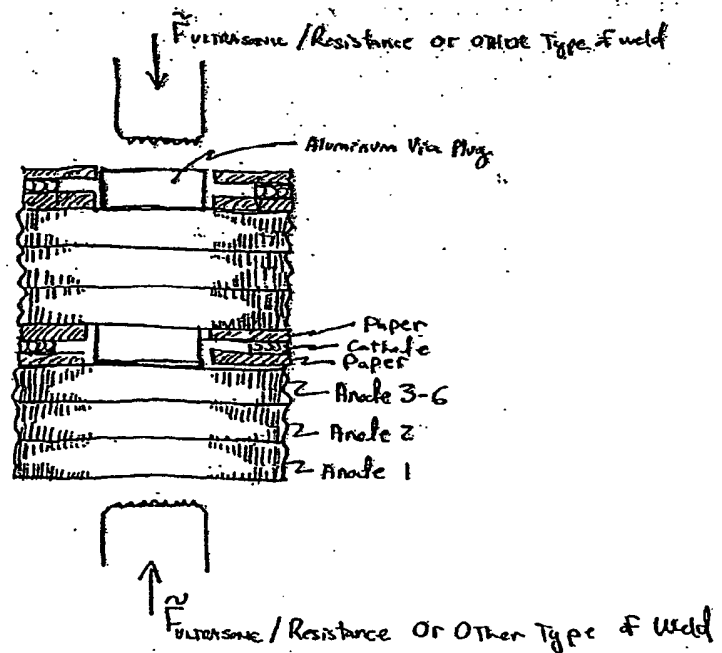 F̃ULTRASONIC / Resistance or OTHER Type of weld
Aluminum Via Plug
Paper
Cathode
Paper
Anode 3-6
Anode 2
Anode 1
F̃ULTRASONIC / Resistance Or OTher Type of Weld